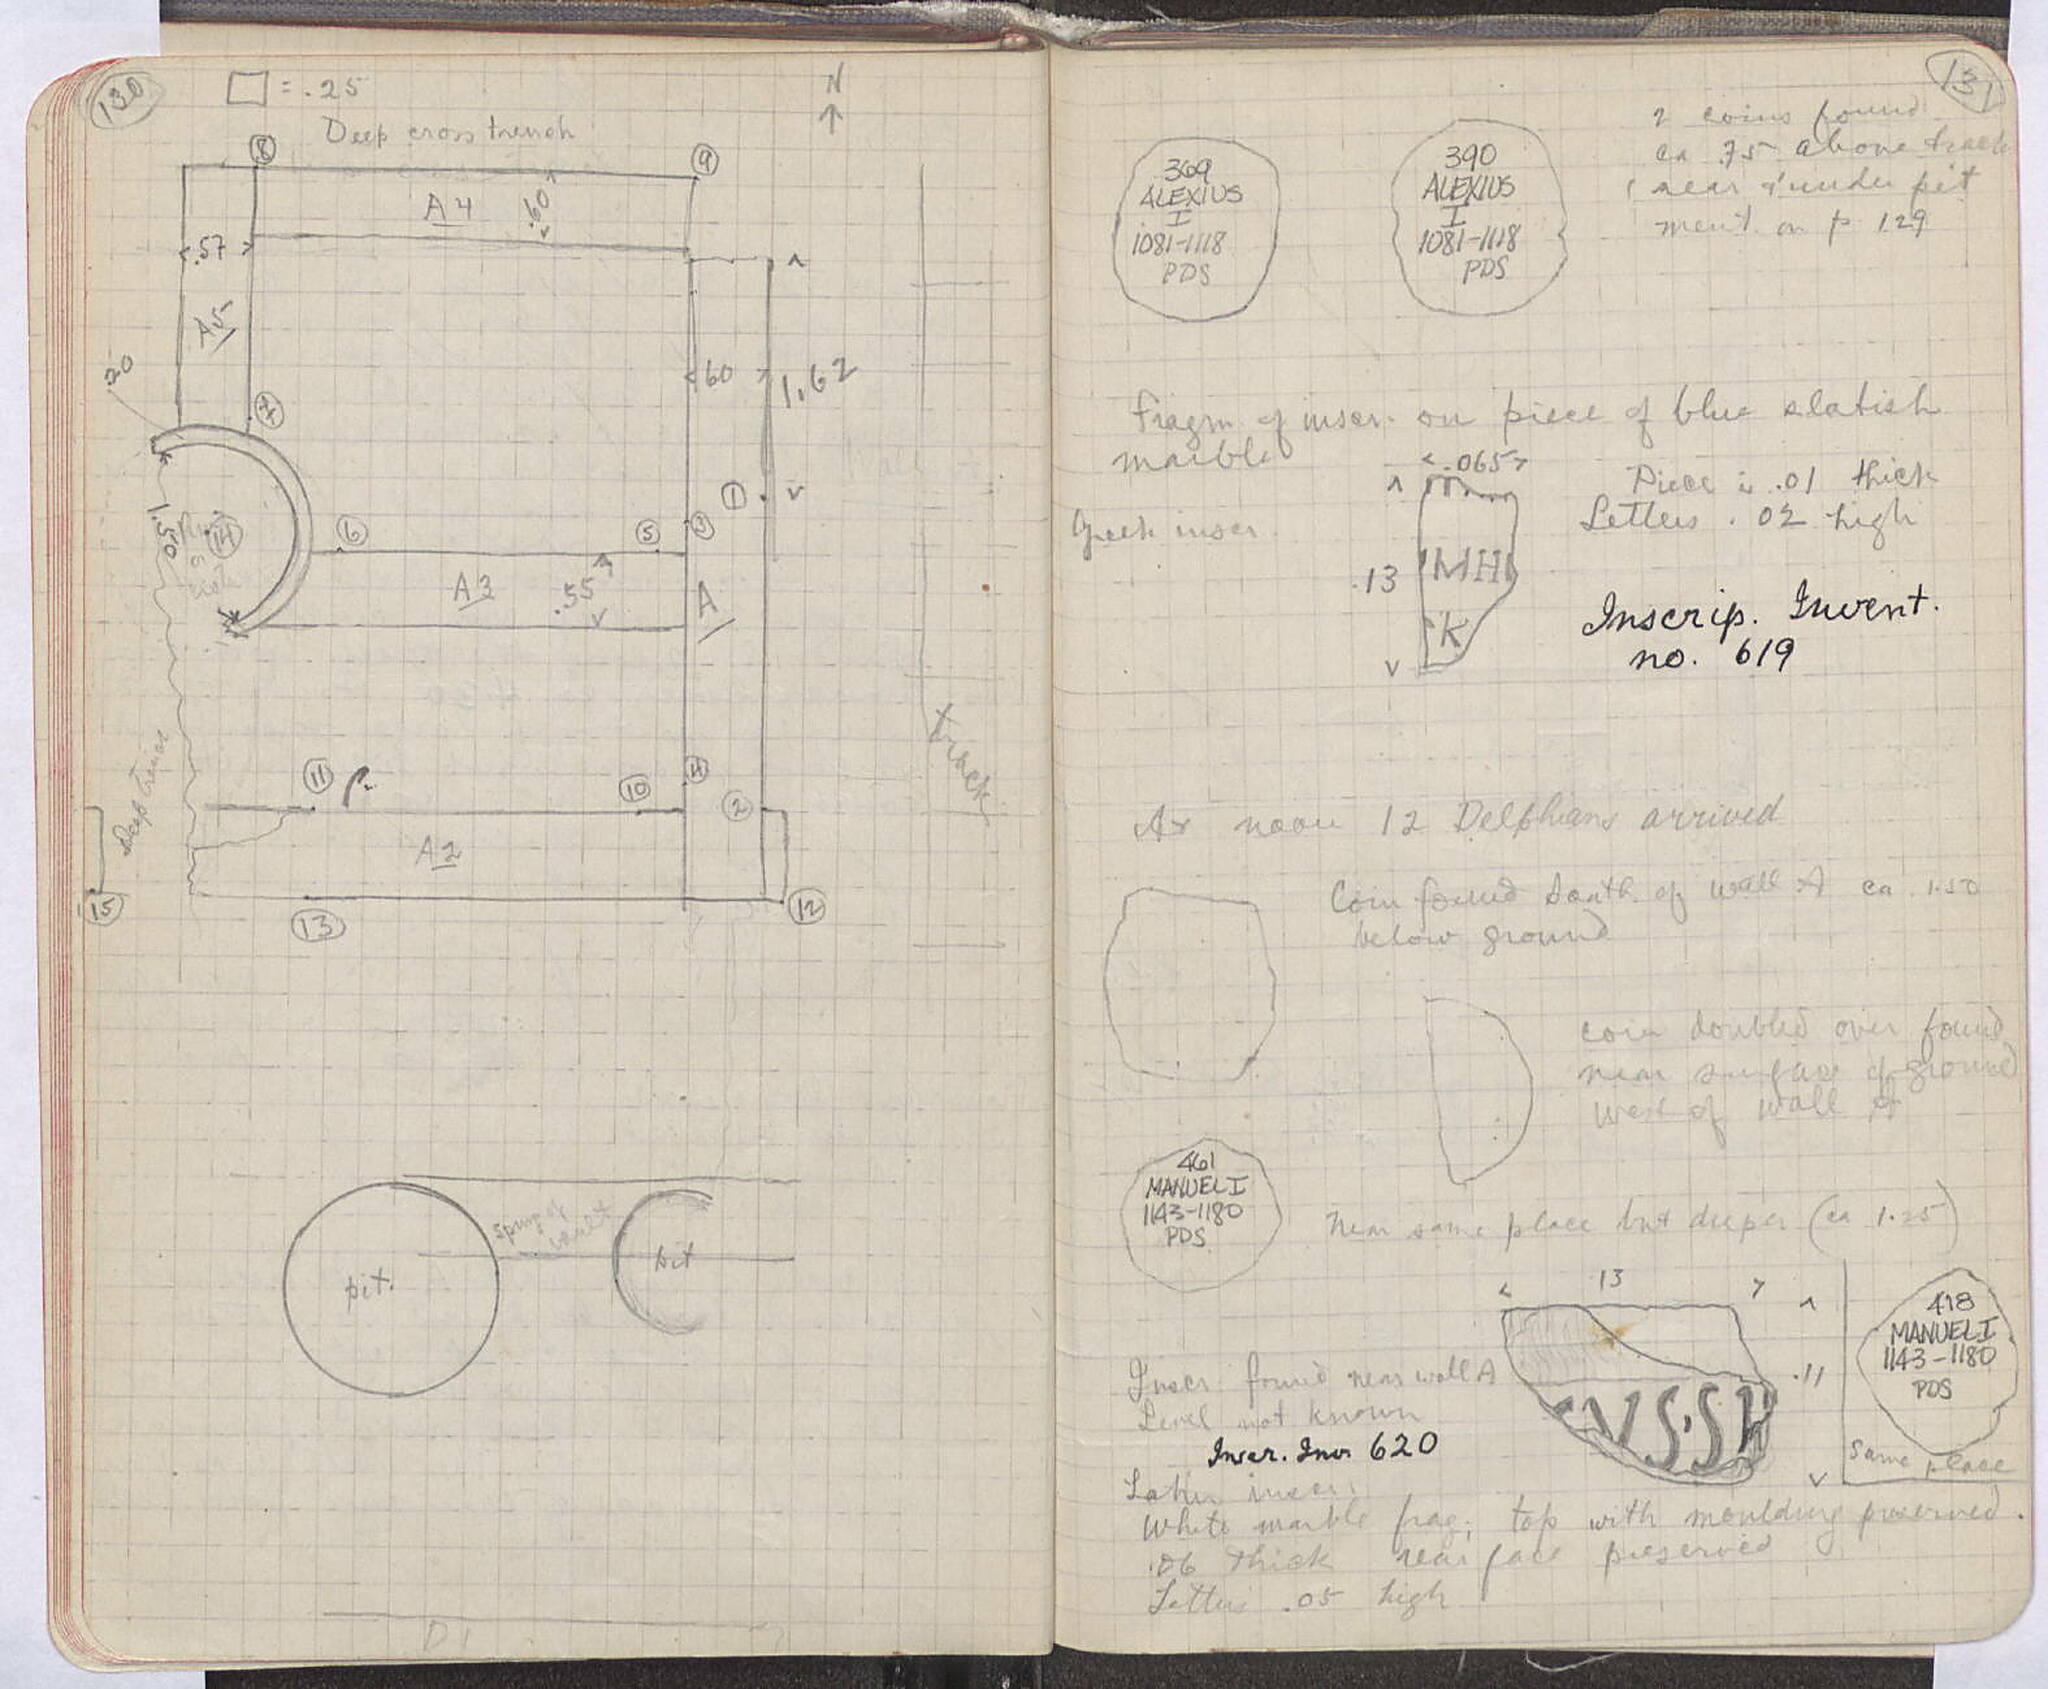 130
= .25
N
Deep cross trench
8
9
A4
.60
.57
A5
.20
7
60
1.62
1
3
14
1.50
6
5
A3
.55
A
track
Deep trench
11
10
4
2
A2
15
13
12
spring of
vault
pit.
pit
131
369
ALEXIUS
I
1081-1118
PDS
390
ALEXIUS
I
1081-1118
PDS
2 coins found
ca .75 above track
near & under pit
ment. on p 129
Fragm of inscr. on piece of blue slatish
marble
.065
Piece is .01 thick
Letters .02 high
Greek inscr.
.13
MH
K
Inscrip. Invent.
no. 619
At noon 12 Delphians arrived
Coin found South of wall A ca 1.50
below ground
coin doubled over found
near surface of ground
west of wall A
461
MANUEL I
1143-1180
PDS
Near same place but deeper (ca 1.25)
13
.11
418
MANUEL I
1143-1180
PDS
same place
Inscr found near wall A
Level not known
Inscr. Inv. 620
VS·SI
Latin inscr.
White marble frag; top with moulding preserved.
.06 thick rear face preserved
Letters .05 high